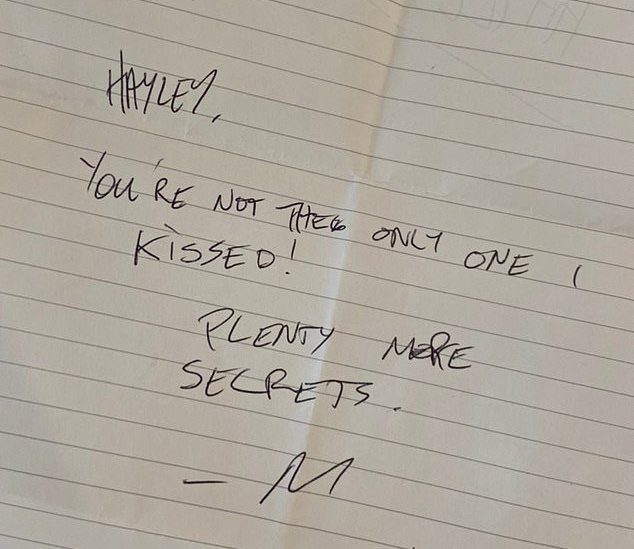 HAYLEY,
YOU'RE NOT THEE ONLY ONE I
KISSED!
PLENTY MORE
SECRETS.
— M